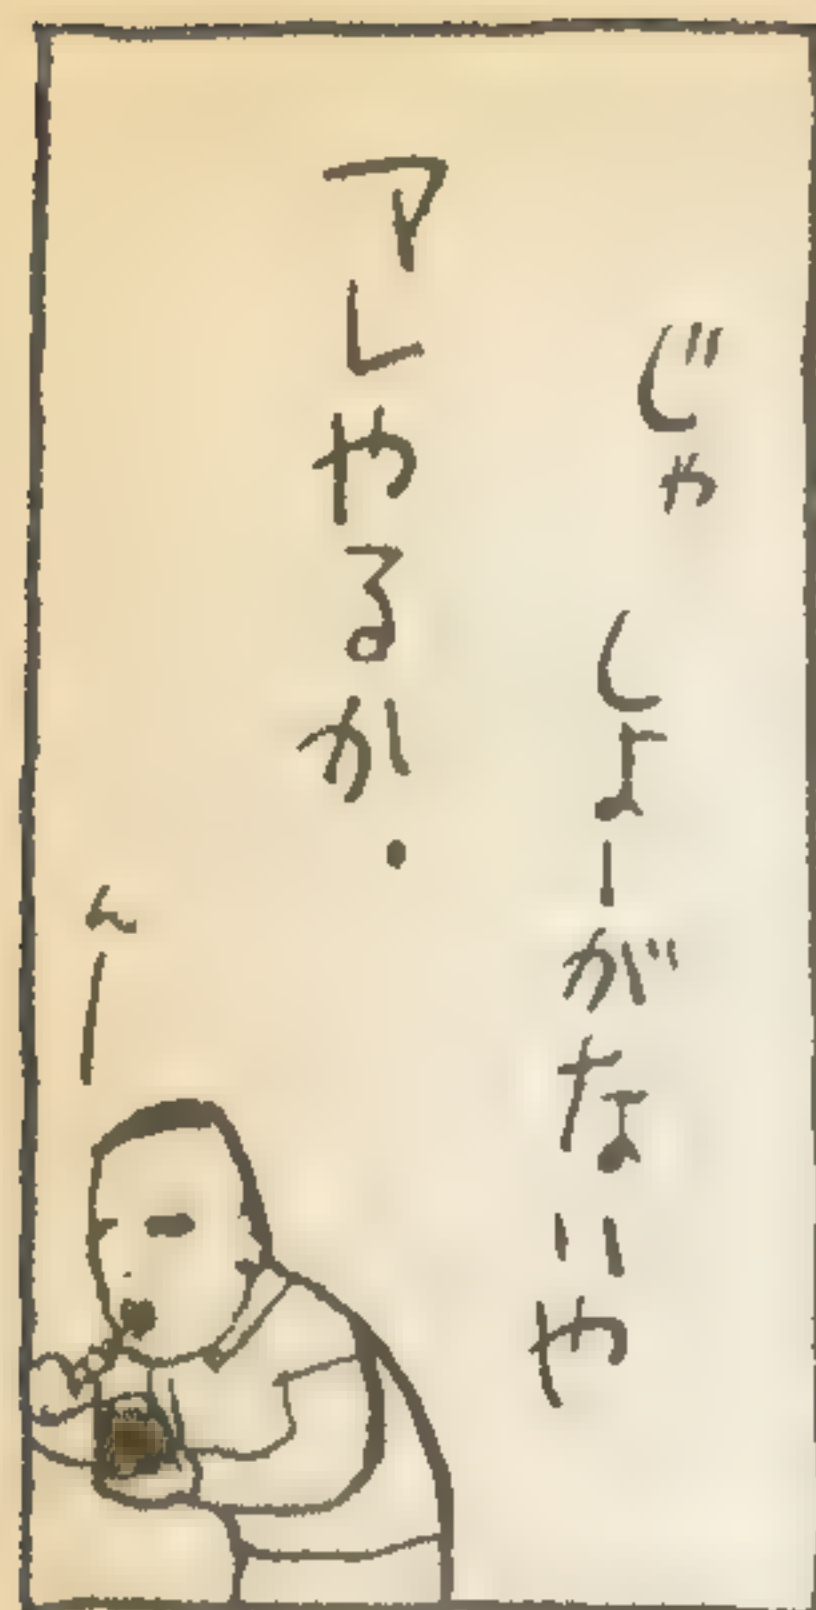 じゃ
しょーがないや
アレやるか.
んー